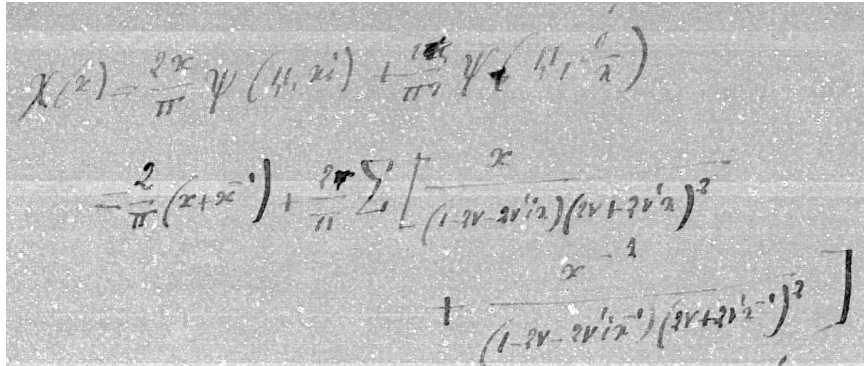 χ(x) = 2x/π ψ(½, xi) + 2/πx ψ(½, i/x)
= 2/π (x + x⁻¹) + 2/π Σ [ x/((1-2ν-2ν'ix)(2ν+2ν'x)²)
+ x⁻¹/((1-2ν-2ν'ix⁻¹)(2ν+2ν'x⁻¹)²) ]